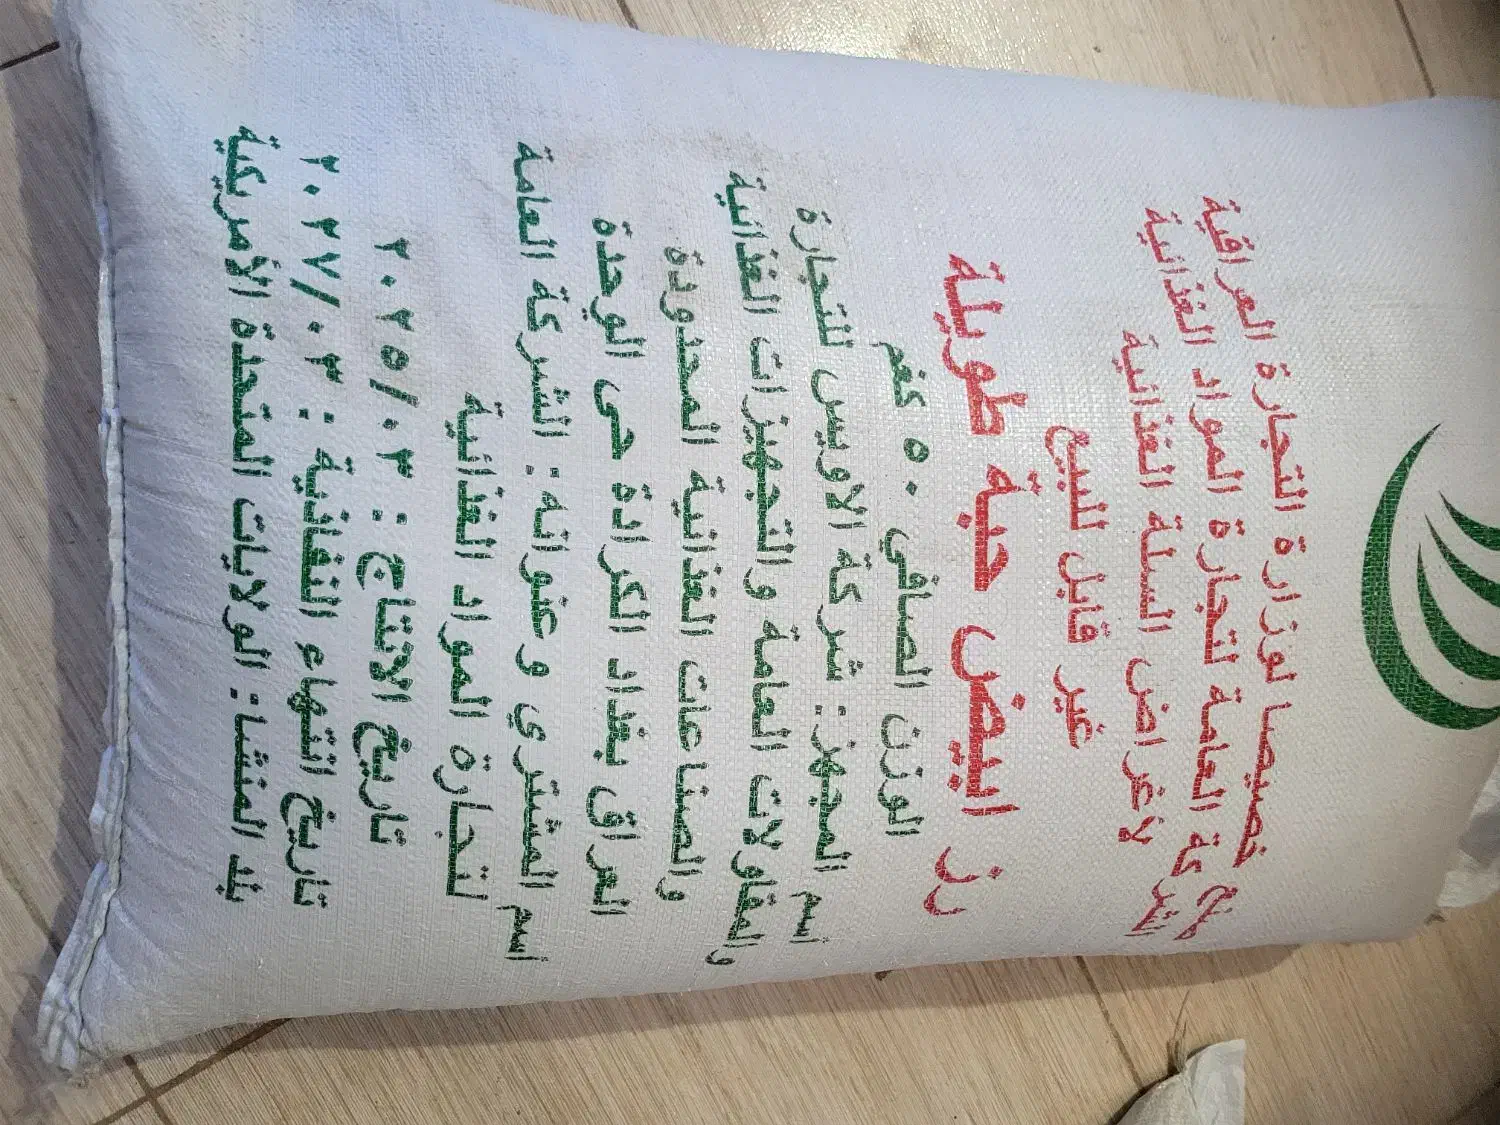 خصيصا لوزارة التجارة العراقية
الشركة العامة لتجارة المواد الغذائية
لاغراض السلة الغذائية
غير قابل للبيع
رز ابيض حبة طويلة
الوزن الصافي ٥٠ كغم
اسم المجهز: شركة الاويس للتجارة
والمقاولات العامة والتجهيزات الغذائية
والصناعات الغذائية المحدودة
العراق بغداد الكرادة حى الوحدة
اسم المشتري وعنوانه: الشركة العامة
لتجارة المواد الغذائية
تاريخ الانتاج : ٢٠٢٥/٠٣
تاريخ انتهاء النفاذية : ٢٠٢٧/٠٣
بلد المنشا: الولايات المتحدة الأمريكية